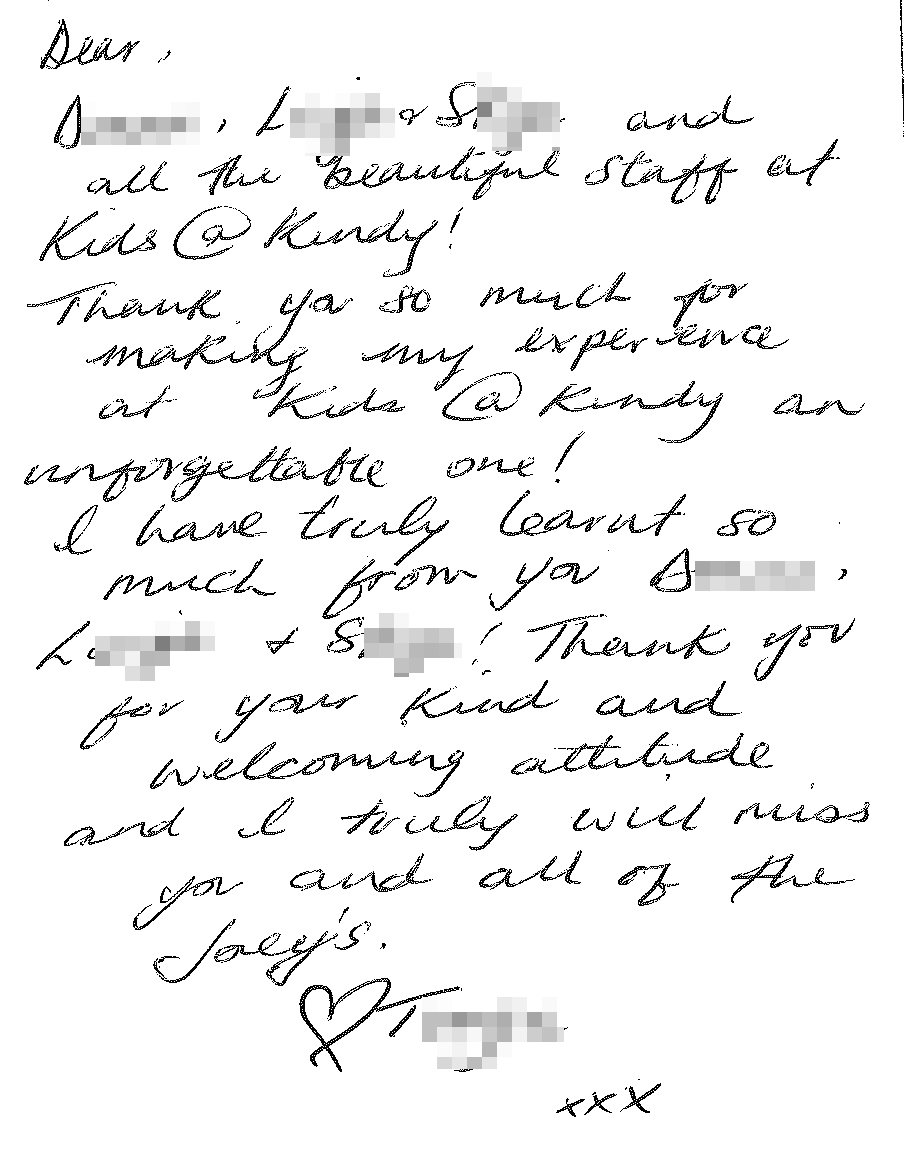 Dear,
and
all the beautiful staff at
Kids @ Kindy!
Thank you so much for
making my experience
at Kids @ Kindy an
unforgettable one!
I have truly learnt so
much from you
! Thank you
for your kind and
welcoming attitude
and I truly will miss
you and all of the
Joey's.
xxx